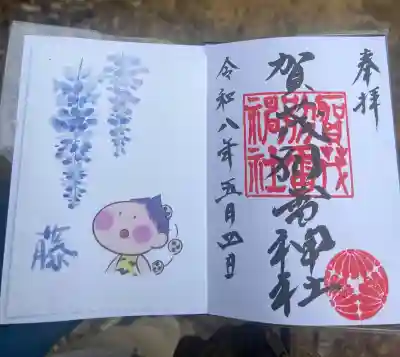 奉拝
賀茂別雷神社
賀茂
別雷
神社
令和八年五月四日
藤